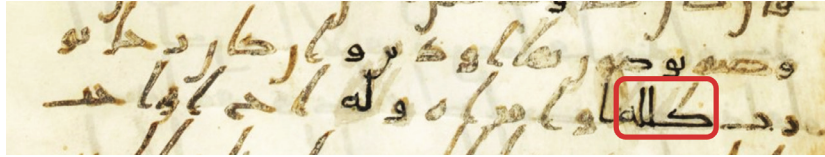 وصيه توصون بها او دين وان كان رجل يو
رث كلله او امراه وله اخ او اخت